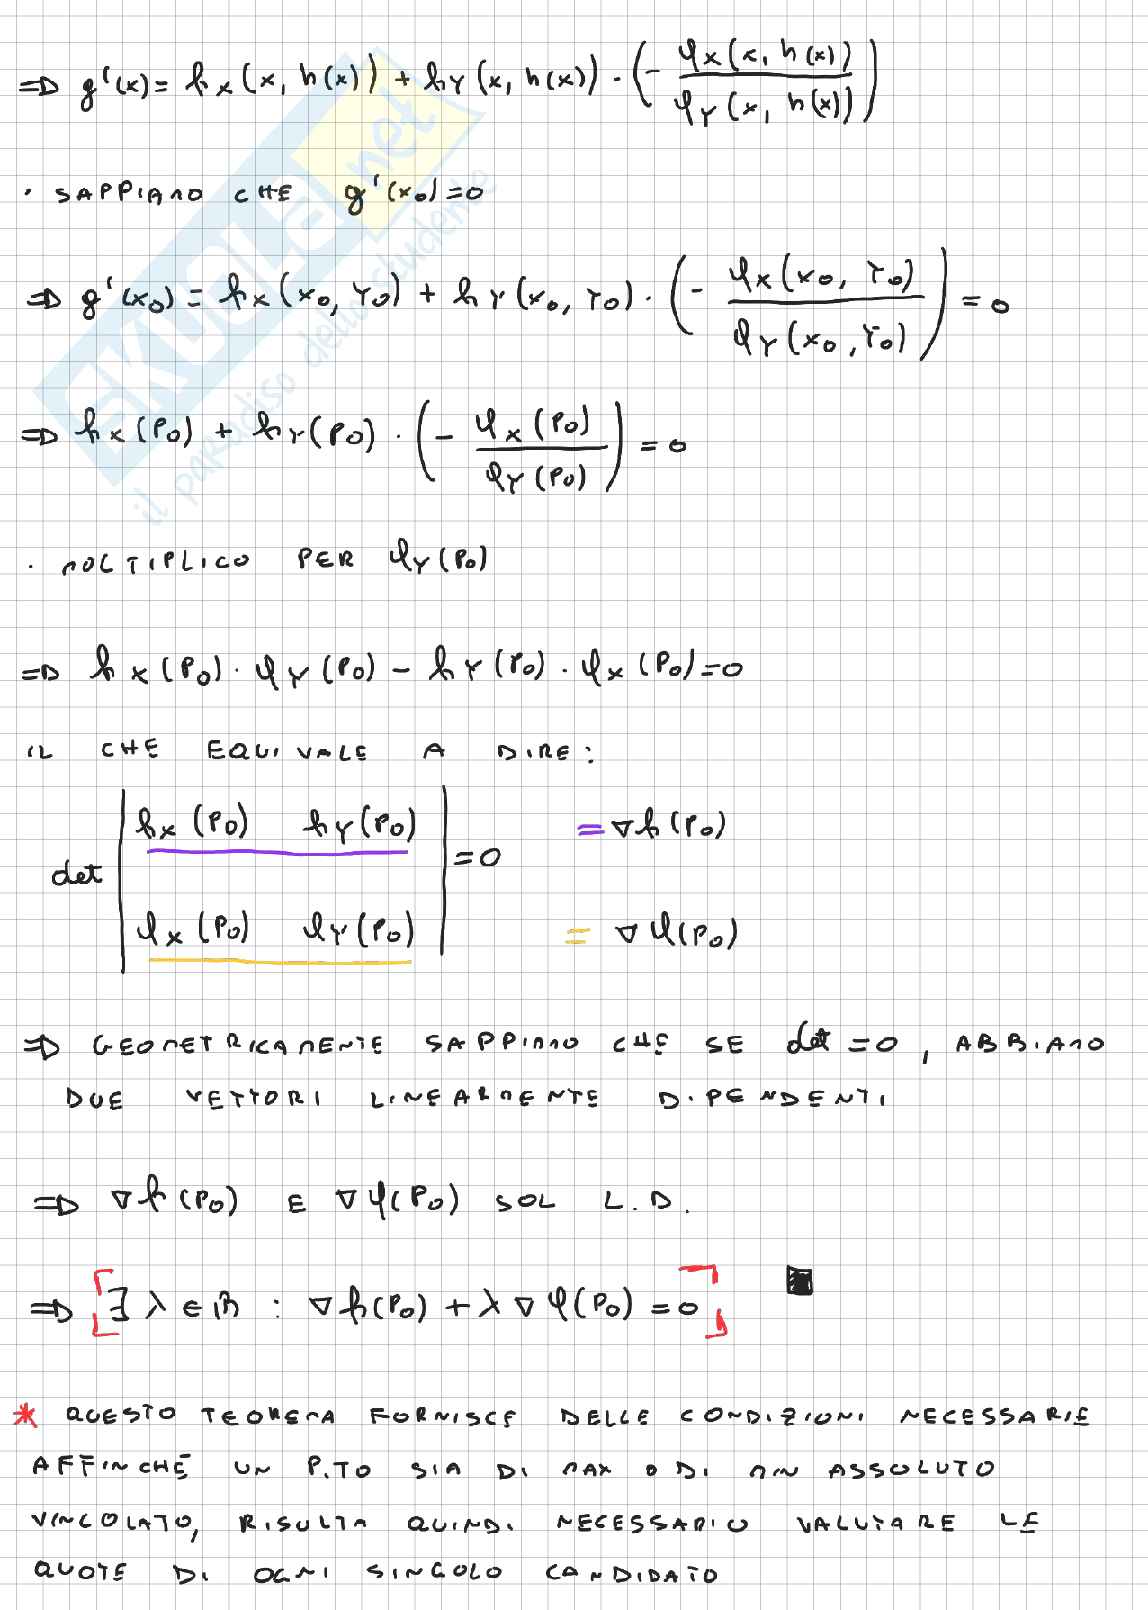 ⇒ g'(x) = f_x(x, h(x)) + f_y(x, h(x)) · (- φ_x(x, h(x)) / φ_y(x, h(x)))
· SAPPIAMO CHE g'(x₀)=0
⇒ g'(x₀) = f_x(x₀, y₀) + f_y(x₀, y₀) · (- φ_x(x₀, y₀) / φ_y(x₀, y₀)) = 0
⇒ f_x(P₀) + f_y(P₀) · (- φ_x(P₀) / φ_y(P₀)) = 0
· MOLTIPLICO PER φ_y(P₀)
⇒ f_x(P₀) · φ_y(P₀) - f_y(P₀) · φ_x(P₀) = 0
IL CHE EQUIVALE A DIRE:
f_x(P₀) f_y(P₀) = ∇f(P₀)
det = 0
φ_x(P₀) φ_y(P₀) = ∇φ(P₀)
⇒ GEOMETRICAMENTE SAPPIAMO CHE SE det = 0, ABBIAMO
DUE VETTORI LINEARMENTE DIPENDENTI
⇒ ∇f(P₀) E ∇φ(P₀) SOL L.D.
⇒ [∃ λ ∈ ℝ : ∇f(P₀) + λ∇φ(P₀) = 0]
* QUESTO TEOREMA FORNISCE DELLE CONDIZIONI NECESSARIE
AFFINCHÉ UN P.TO SIA DI MAX O DI MIN ASSOLUTO
VINCOLATO, RISULTA QUINDI NECESSARIO VALUTARE LE
QUOTE DI OGNI SINGOLO CANDIDATO
SKUOLA.net
il paradiso dello studente